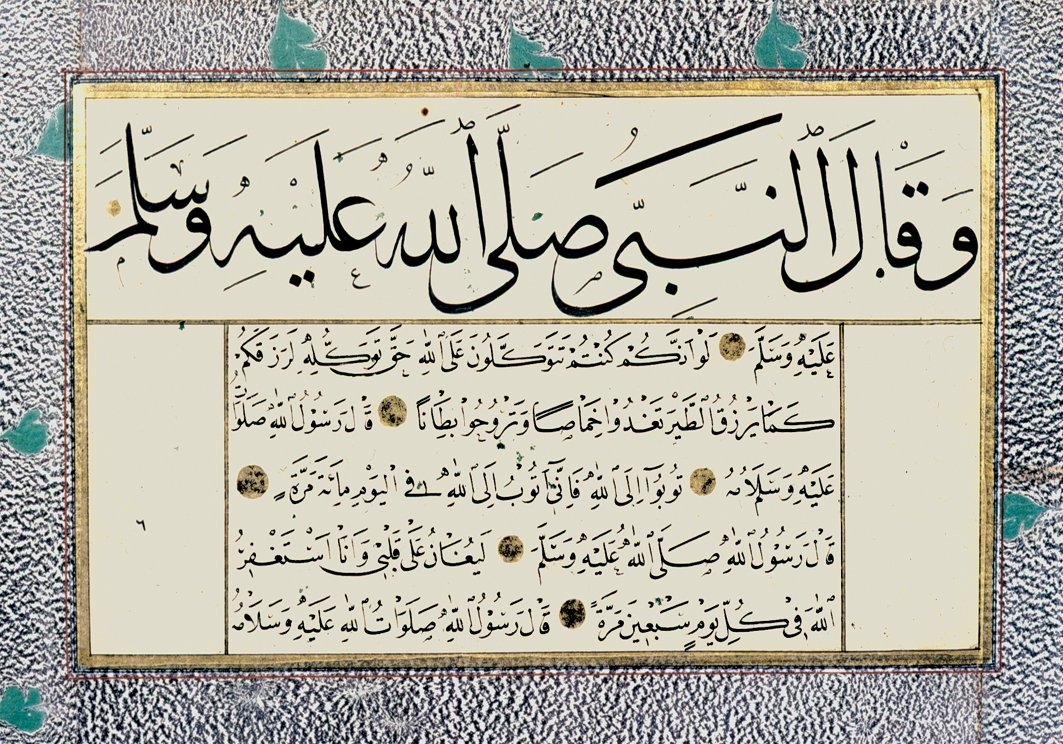 وَقَالَ النَّبِىُّ صَلَّى اللّٰهُ عَلَيْهِ وَسَلَّمَ
عَلَيْهِ وَسَلَّمَ لَوْ اَنَّكُمْ كُنْتُمْ تَتَوَكَّلُونَ عَلَى اللّٰهِ حَقَّ تَوَكُّلِهِ لَرَزَقَكُمْ
كَمَا يَرْزُقُ الطَّيْرَ تَغْدُوا خِمَاصًا وَتَرُوحُوا بِطَانًا قَالَ رَسُولُ اللّٰهِ صَلَوَاتُ
عَلَيْهِ وَسَلَامُهُ تُوبُوا اِلَى اللّٰهِ فَاِنِّى اَتُوبُ اِلَى اللّٰهِ فِى الْيَوْمِ مِائَةَ مَرَّةٍ
قَالَ رَسُولُ اللّٰهِ صَلَّى اللّٰهُ عَلَيْهِ وَسَلَّمَ لَيُغَانُ عَلَى قَلْبِى وَاَنَا اَسْتَغْفِرُ
اللّٰهَ فِى كُلِّ يَوْمٍ سَبْعِينَ مَرَّةً قَالَ رَسُولُ اللّٰهِ صَلَوَاتُ اللّٰهِ عَلَيْهِ وَسَلَامُهُ
٦